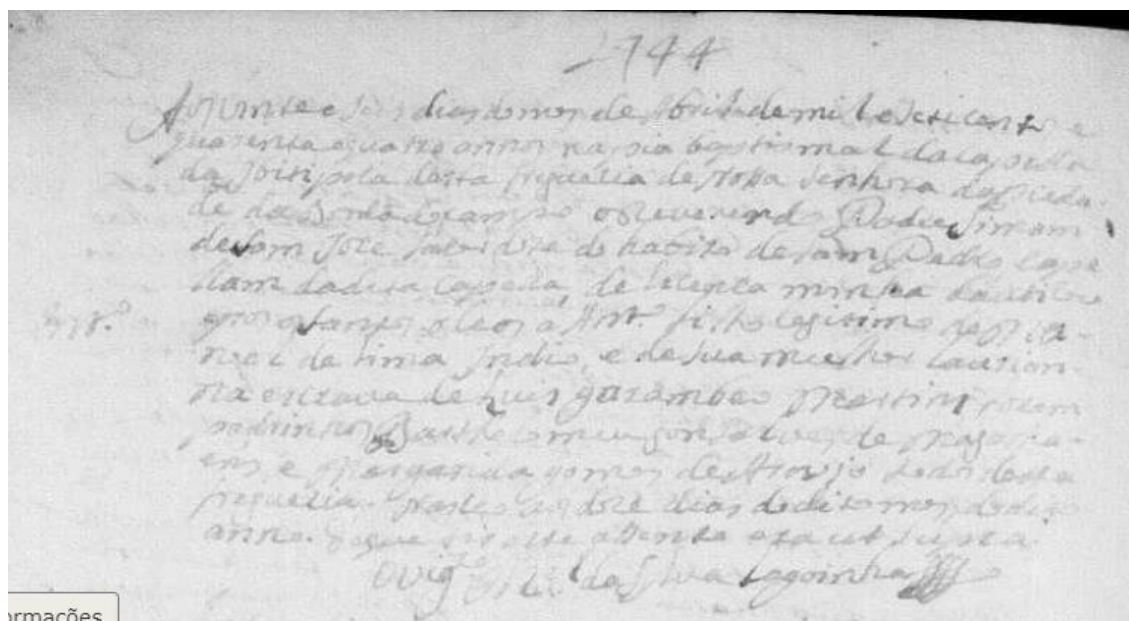 1744
Aos vinte e seis dias do mes de Abril de mil e setecentos e
quarenta e quatro annos na pia baptismal da capella
da Ibitipoca desta freguesia de Nossa Senhora da Pieda-
de da Borda do campo o Reverendo Padre Simam
de Sam José sacerdote do habito de Sam Pedro cape
llam da dita capella de licença minha bautizou
e pos os santos oleos a Ant.º filho legitimo de Ma-
noel de Lima Indio, e de sua mulher
escrava de Luis Martins foram
padrinhos Bartholomeu gonsalves de
e Margarida gomes de Araujo todos desta
freguesia. Nasceo aos doze dias do dito mes do dito
anno. de que fis este assento era ut supra
O vig.º da Silva Lagoinha
ormações